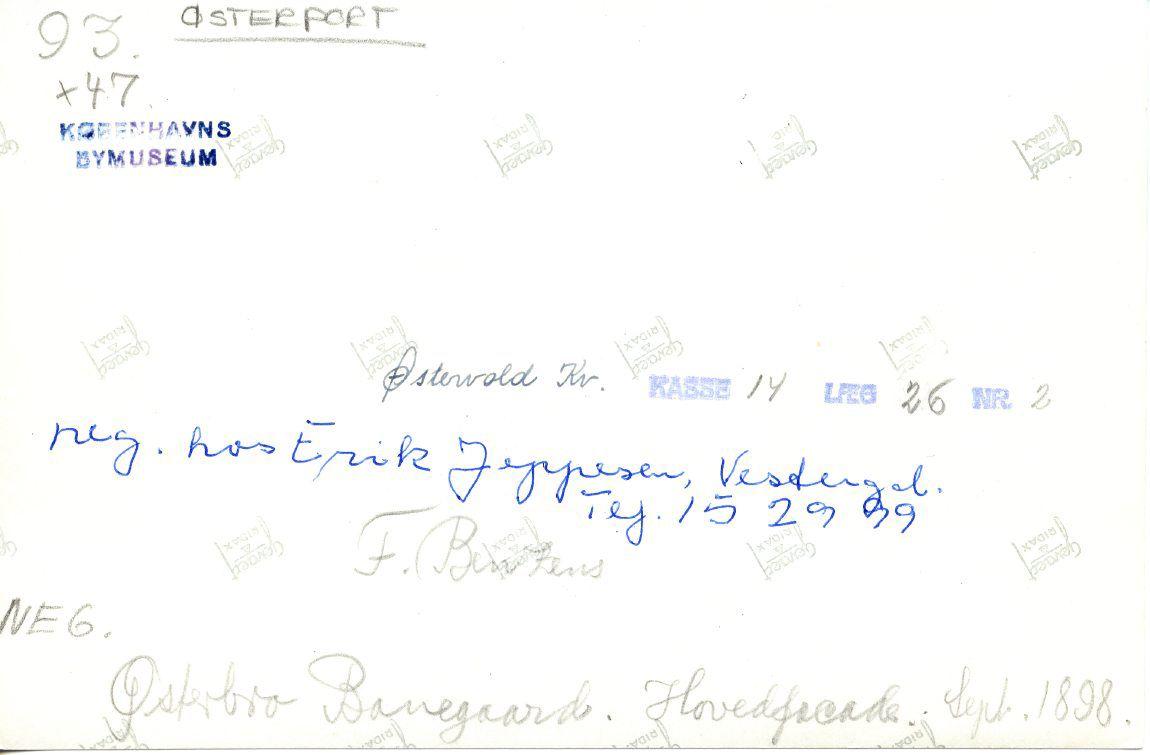 93.
ØSTERPORT
+47.
KØBENHAVNS
BYMUSEUM
Østervold Kv. KASSE 14 LÆG 26 NR. 2
neg. hos Erik Jeppesen, Vestergd.
Tlf. 15 29 99
F. Bentzens
NEG.
Østerbro Banegaard. Hovedfacade. Sept. 1898.
Gevaert
RIDAX